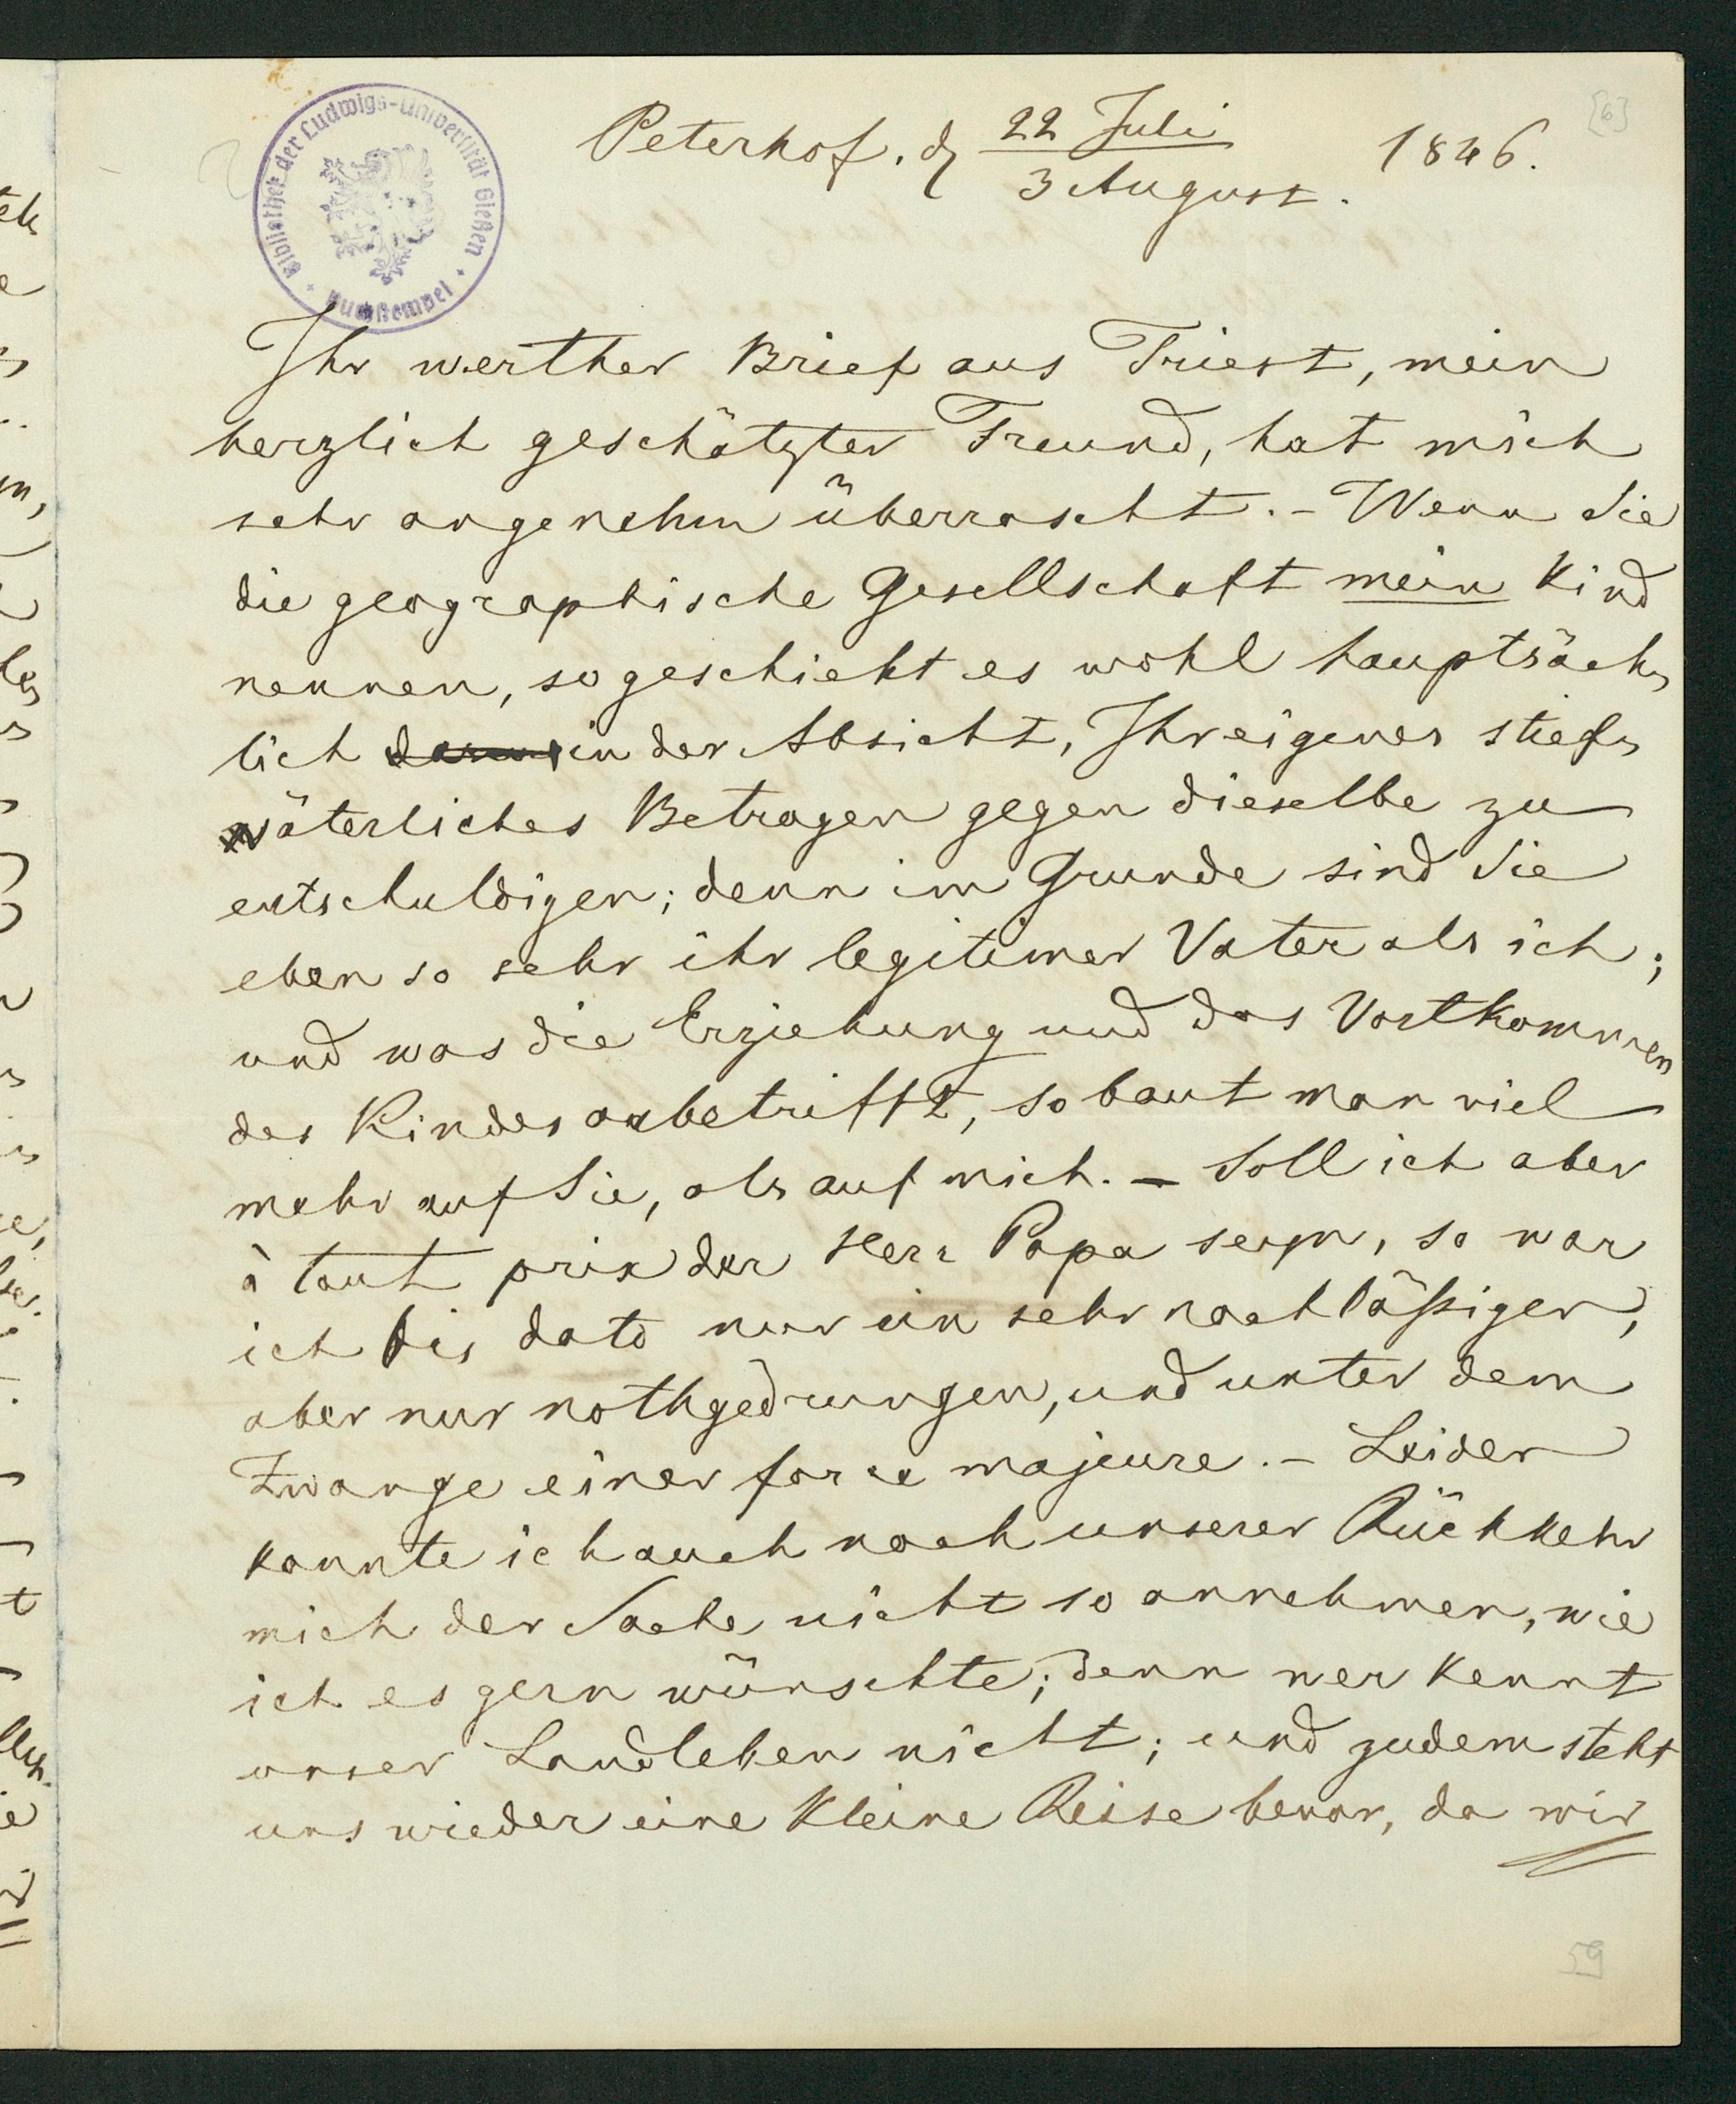 [6]
Bibliothek der Ludwigs-Universität Gießen
Buchstempel
Peterhof. d 22 Juli / 3 August. 1846.
Ihr werther Brief aus Triest, mein
herzlich geschätzter Freund, hat mich
sehr angenehm überrascht. – Wenn Sie
die geographische Gesellschaft mein Kind
nennen, so geschieht es wohl hauptsäch-
lich in der Absicht, Ihr eigenes stief-
väterliches Betragen gegen dieselbe zu
entschuldigen; denn im Grunde sind Sie
eben so sehr ihr legitimer Vater als ich;
und was die Erziehung und das Vortkommen
des Kindes anbetrifft, so baut man viel
mehr auf Sie, als auf mich. – Soll ich aber
à tout prix der Herr Papa seyn, so war
ich bis dato nur ein sehr nachläßiger,
aber nur nothgedrungen, und unter dem
Zwange einer force majeure. – Leider
konnte ich auch nach unserer Rückkehr
mich der Sache nicht so annehmen, wie
ich es gern wünschte; denn wer kennt
unser Landleben nicht; und zudem steht
uns wieder eine Kleine Reise bevor, da wir
59